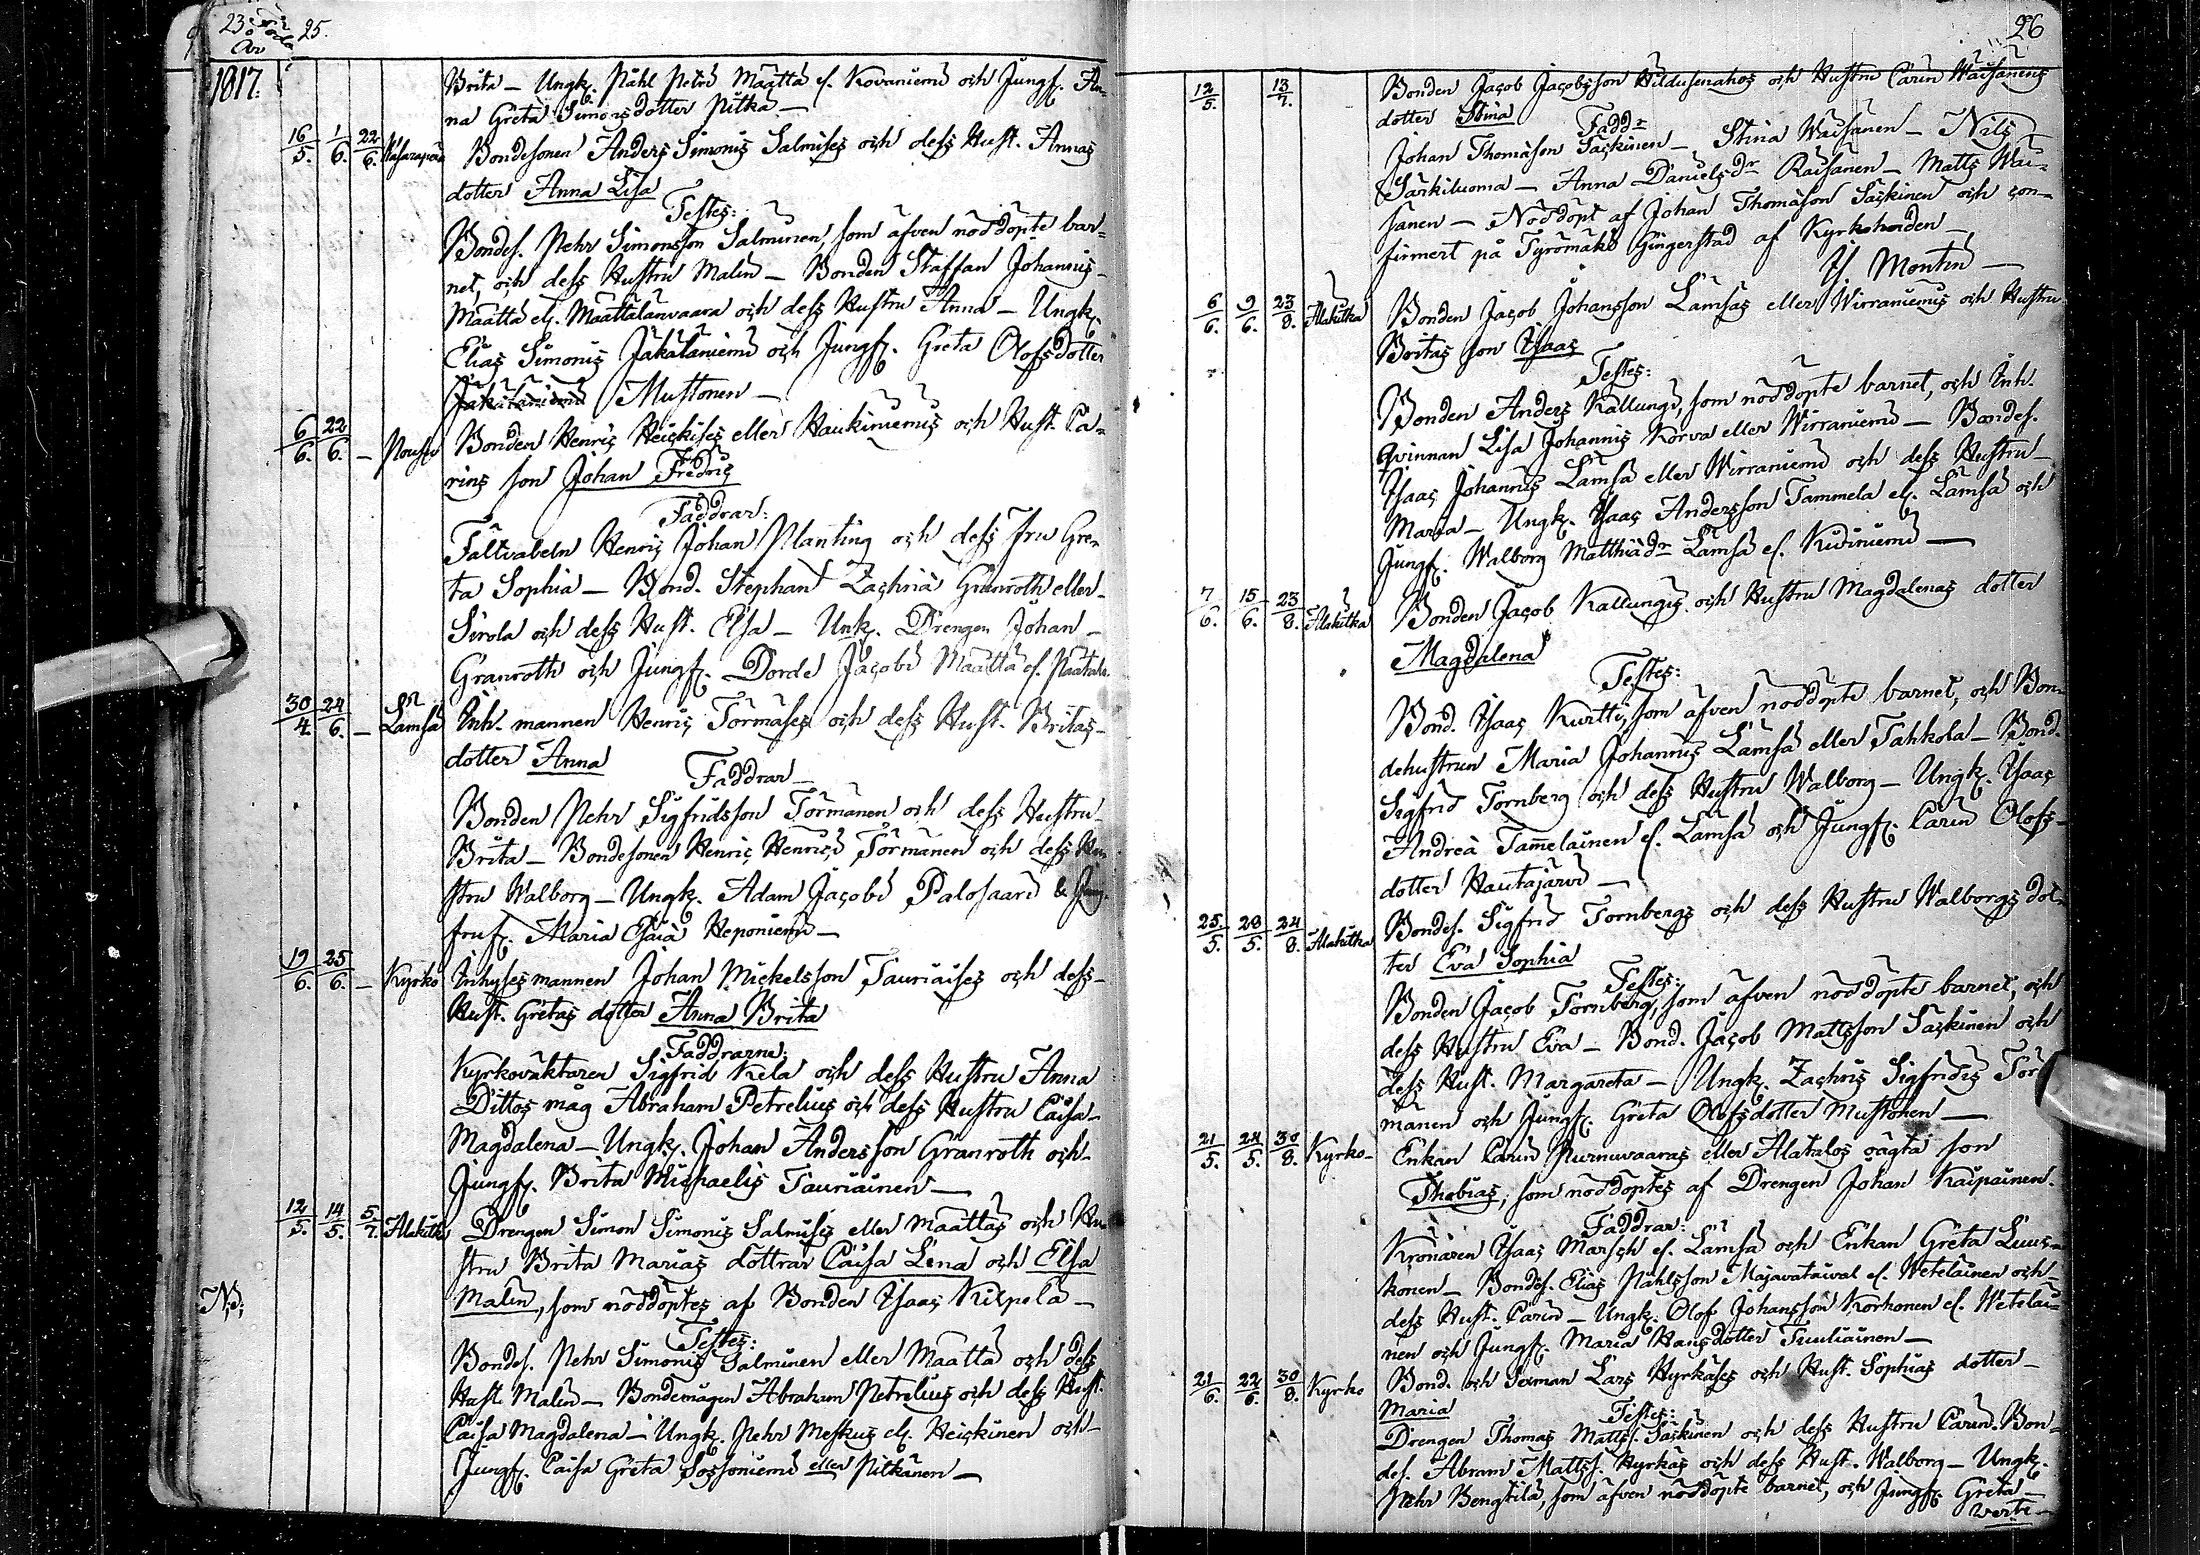 23 25.
1817.
Brita – Ungk. Påhl Petri Määttä el. Kovaniemi och Jungf. An-
na Greta Simonsdotter Pitkä –
16/5. 1/6. 22/6. Bondesonen Anders Simonis Salmises och dess Hust. Annas
dotter Anna Lisa
Testes:
Bondes. Pehr Simonsson Salminen, som äfven nöddöpte bar-
net, och dess Hustru Malin – Bonden Staffan Johannis
Määttä el. Määttälänvaara och dess Hustru Anna – Ungk.
Elias Simonis Jäkäläniemi och Jungf. Greta Olofsdotter
Jäkäläniemi Mustonen –
6/6. 22/6. – Bonden Henric Heickises eller Haukiniemis och Hust. Ca-
rins son Johan Fredric
Faddrar:
Fältväbeln Henric Johan Planting och dess fru Gre-
ta Sophia – Bond. Stephan Zachriæ Granroth eller
Sirola och dess Hust. Elsa – Unk. Drengen Johan
Granroth och Jungf. Dorde Jacobi Määttä el. Päätalo
30/4. 24/6. – Lämsä Inh. mannen Henric Törmäses och dess Hust. Britas
dotter Anna
Faddrar –
Bonden Pehr Sigfridsson Törmänen och dess Hustru
Brita – Bondesonen Henric Henrici Törmänen och dess Hu-
stru Walborg – Ungk. Adam Jacobi Palosaari & Jung-
fruf. Maria Esaiæ Heponiemi –
19/6. 25/6. – Kyrko Inhysesmannen Johan Mickelsson Tauriaises och dess
Hust. Gretas dotter Anna Brita
Faddrarne:
Kyrkoväktaren Sigfrid Kela och dess Hustru Anna
Dittos måg Abraham Petrelius och dess Hustru Caisa
Magdalena – Ungk. Johan Andersson Granroth och
Jungf. Brita Michaelis Tauriainen –
12/5. 14/5. 5/7. Alakitka Drengen Simon Simonis Salmises eller Määttäs och Hu-
stru Brita Marias döttrar Caisa Lena och Elsa
Malin, som nöddöptes af Bonden Isaac Kilpelä –
Testes:
Bondes. Pehr Simonis Salminen eller Määttä och dess
Hust. Malin – Bondemågen Abraham Petrelius och dess Hust.
Caisa Magdalena – Ungk. Pehr Meskus el. Heickinen och
Jungf. Caisa Greta Sossoniemi eller Pitkänen –
26
12/5. 13/7. Bonden Jacob Jacobsson Hildusenahos och Hustru Carin Wäisänens
dotter Stina
Faddr
Johan Thomasson Säckinen – Stina Wäisänen – Nils
Särkiluoma – Anna Danielsdr Räisänen – Matts Wäi-
sänen – Nöddöpt af Johan Thomasson Säckinen och con-
firmert på Tyrömäki Gingerstad af Kyrkoherden
Is. Montin –
6/6. 9/6. 23/8. Alakitka Bonden Jacob Johansson Lämsäs eller Wirraniemis och Hustru
Britas son Isaac
Testes:
Bonden Anders Kallungi, som nöddöpte barnet, och Inh.
qvinnan Lisa Johannis Korva eller Wirraniemi – Bondes.
Isaac Johannis Lämsä eller Wirraniemi och dess Hustru
Maria – Ungk. Isaac Andersson Tammela el. Lämsä och
Jungf. Walborg Matthiædr Lämsä el. Kiviniemi –
7/6. 15/6. 23/8. Alakitka Bonden Jacob Kallungis och Hustru Magdalenas dotter
Magdalena
Testes:
Bond. Isaac Kurtti, som äfven nöddöpte barnet, och Bon-
dehustrun Maria Johannis Lämsä eller Tahkola – Bond.
Sigfrid Tornberg och dess Hustru Walborg – Ungk. Isaac
Andreæ Tamelainen el. Lämsä och Jungf. Carin Olofs-
dotter Hautajärvi –
25/5. 28/5. 24/8. Alakitka Bondes. Sigfrid Tornbergs och dess Hustru Walborgs dot-
ter Eva Sophia
Testes:
Bonden Jacob Tornberg, som äfven nöddöpte barnet, och
dess Hustru Eva – Bond. Jacob Mattsson Säckinen och
dess Hust. Margareta – Ungk. Zachris Sigfridis Tör-
mänen och Jungf. Greta Olofsdotter Mustonen –
21/5. 24/5. 30/8. Kyrko– Enkan Carin Purnuvaaras eller Alatalos oägta son
Thobias, som nöddöptes af Drengen Johan Kaipainen.
Faddrar:
Kronären Isaac Marsch el. Lämsä och Enkan Greta Luus-
konen – Bondes. Elias Påhlsson Majavataival el. Weteläinen och
dess Hust. Carin – Ungk. Olof Johansson Korhonen el. Weteläi-
nen och Jungf. Maria Hansdotter Tuuliainen –
21/6. 22/6. 30/8. Kyrko Bond. och Sexman Lars Hyrkäses och Hust. Sophias dotter
Maria
Testes:
Drengen Thomas Matts. Säckinen och dess Hustru Carin. Bon-
des. Abram Matts. Hyrkäs och dess Hust. Walborg – Ungk.
Pehr Bengtilä, som äfven nöddöpte barnet, och Jungf. Greta
verte –